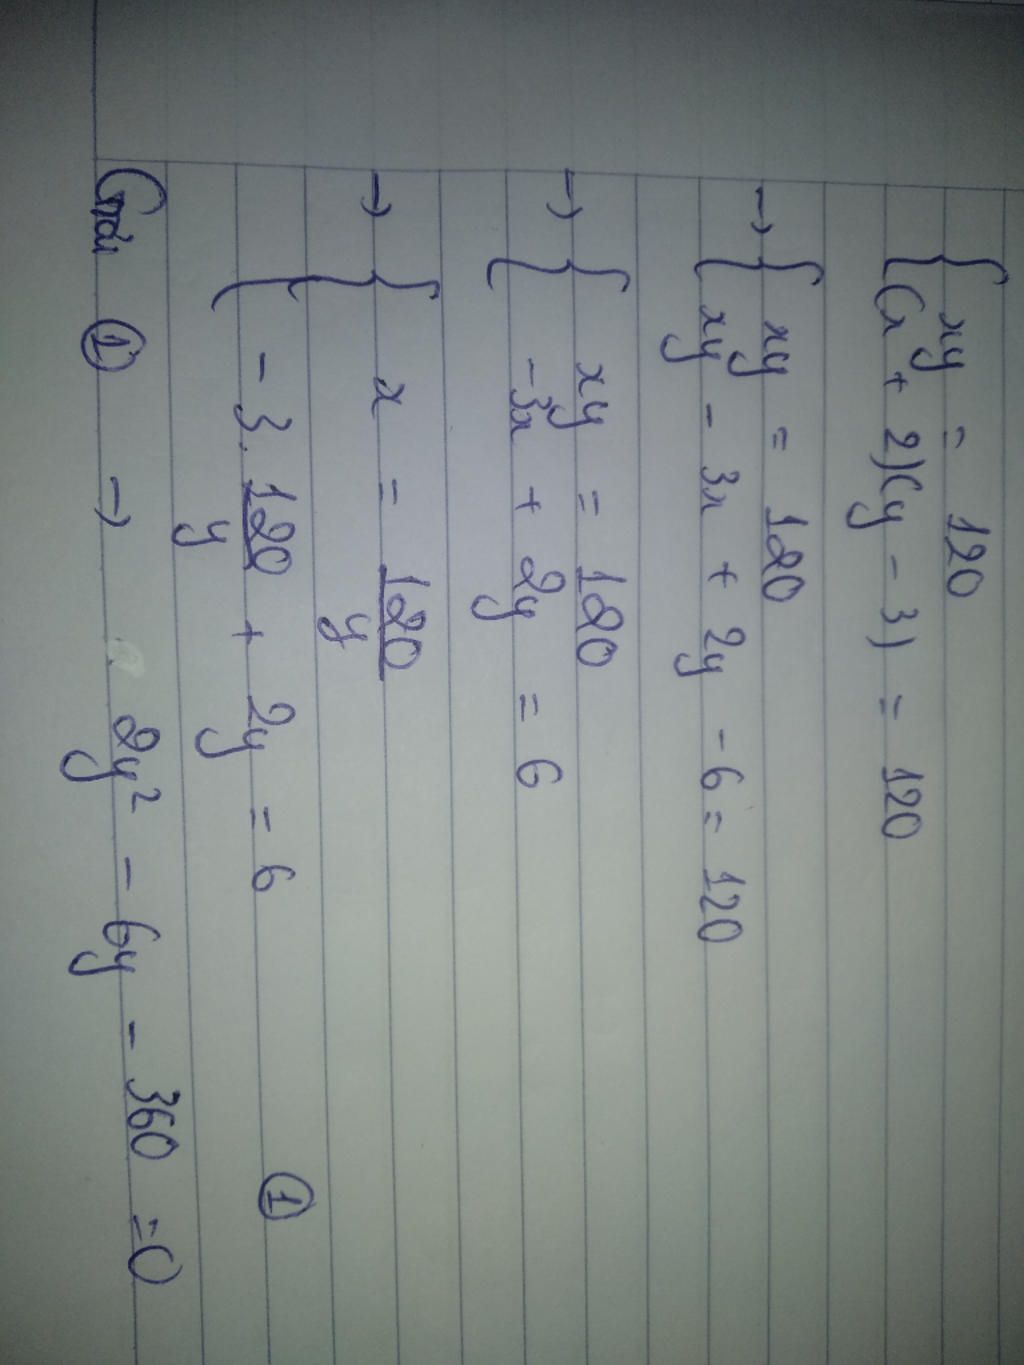 { xy = 120
(x + 2)(y - 3) = 120
→ { xy = 120
xy - 3x + 2y - 6 = 120
→ { xy = 120
-3x + 2y = 6
→ { x = 120/y
-3. 120/y + 2y = 6 ①
Giải ① → 2y² - 6y - 360 = 0